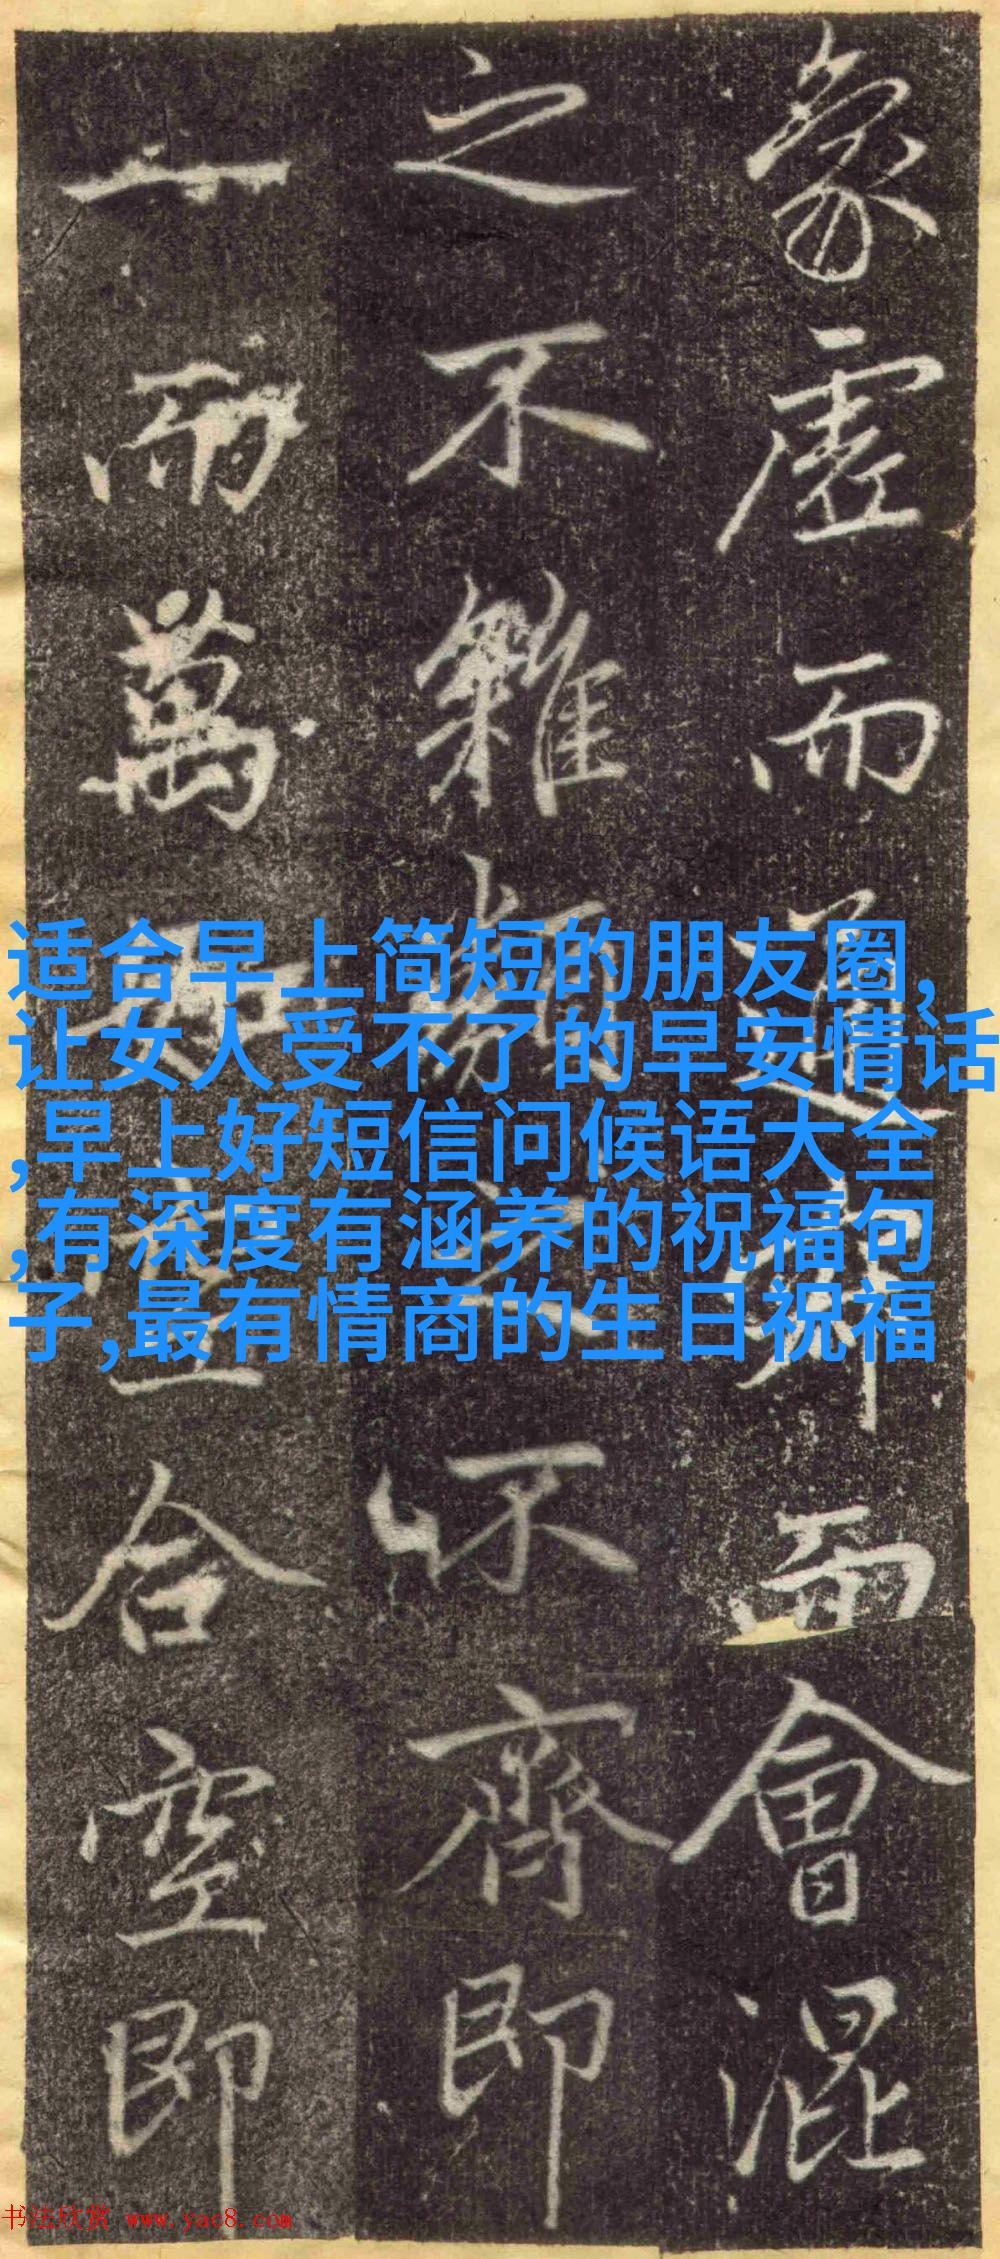 象虛而通而會混
之不雜類不齊即
一而萬合空即
适合早上简短的朋友圈,
让女人受不了的早安情话
,早上好短信问候语大全
,有深度有涵养的祝福句
子,最有情商的生日祝福
书法欣赏 www.yac8.com